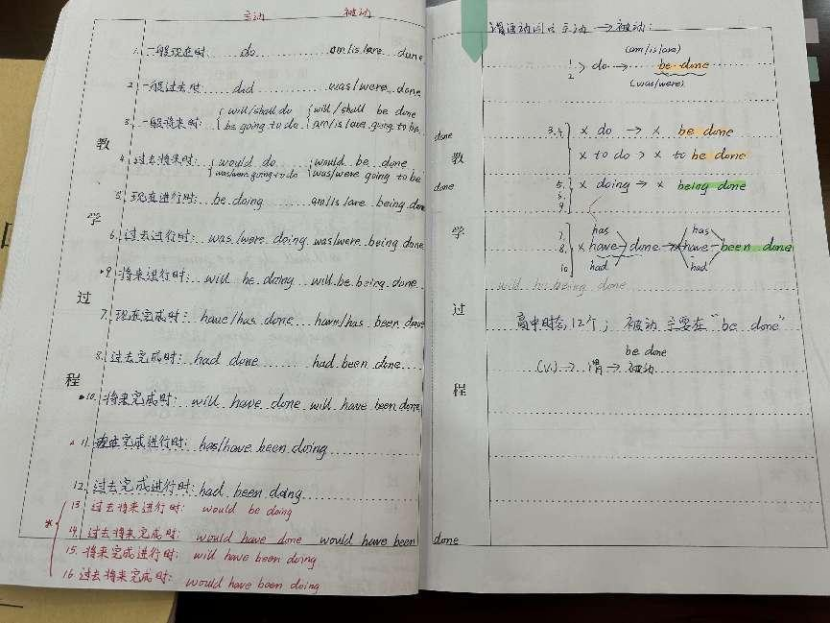 主动 被动
1. 一般现在时: do am/is/are done
2. 一般过去时: did was/were done
3. 一般将来时: { will/shall do { will/shall be done
be going to do am/is/are going to be done
4. 过去将来时: { would do { would be done
was/were going to do was/were going to be done
5. 现在进行时: be doing am/is/are being done
6. 过去进行时: was/were doing was/were being done
9. 将来进行时: will be doing will be being done
7. 现在完成时: have/has done have/has been done
8. 过去完成时: had done had been done
10. 将来完成时: will have done will have been done
11. 现在完成进行时: has/have been doing
12. 过去完成进行时: had been doing
13 过去将来进行时: would be doing
14. 过去将来完成时: would have done would have been done
15. 将来完成进行时: will have been doing
16. 过去将来完成时: would have been doing
教
学
过
程
主动 → 被动:
(am/is/are)
1.
2. > do → be done
(was/were)
3.4. × do → × be done
× to do > × to be done
5. × doing → × being done
9
has has
7.
8. × have done → × have been done
10 had had
will be being done
高中时态12个; 被动主要在“be done”
be done
(v.) → 谓 → 被动
教
学
过
程